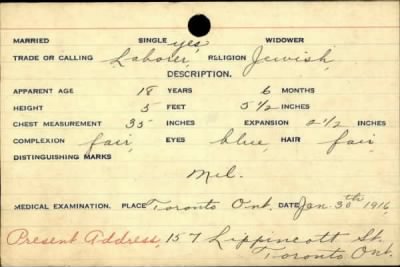 MARRIED SINGLE yes, WIDOWER
TRADE OR CALLING Laborer, RELIGION Jewish,
DESCRIPTION.
APPARENT AGE 18 YEARS 6 MONTHS
HEIGHT 5 FEET 5 1/2 INCHES
CHEST MEASUREMENT 35 INCHES EXPANSION 2 1/2 INCHES
COMPLEXION fair, EYES blue, HAIR fair,
DISTINGUISHING MARKS
Nil.
MEDICAL EXAMINATION. PLACE Toronto Ont. DATE Jan 30th 1916,
Present Address, 157 Lippincott St.
Toronto Ont.